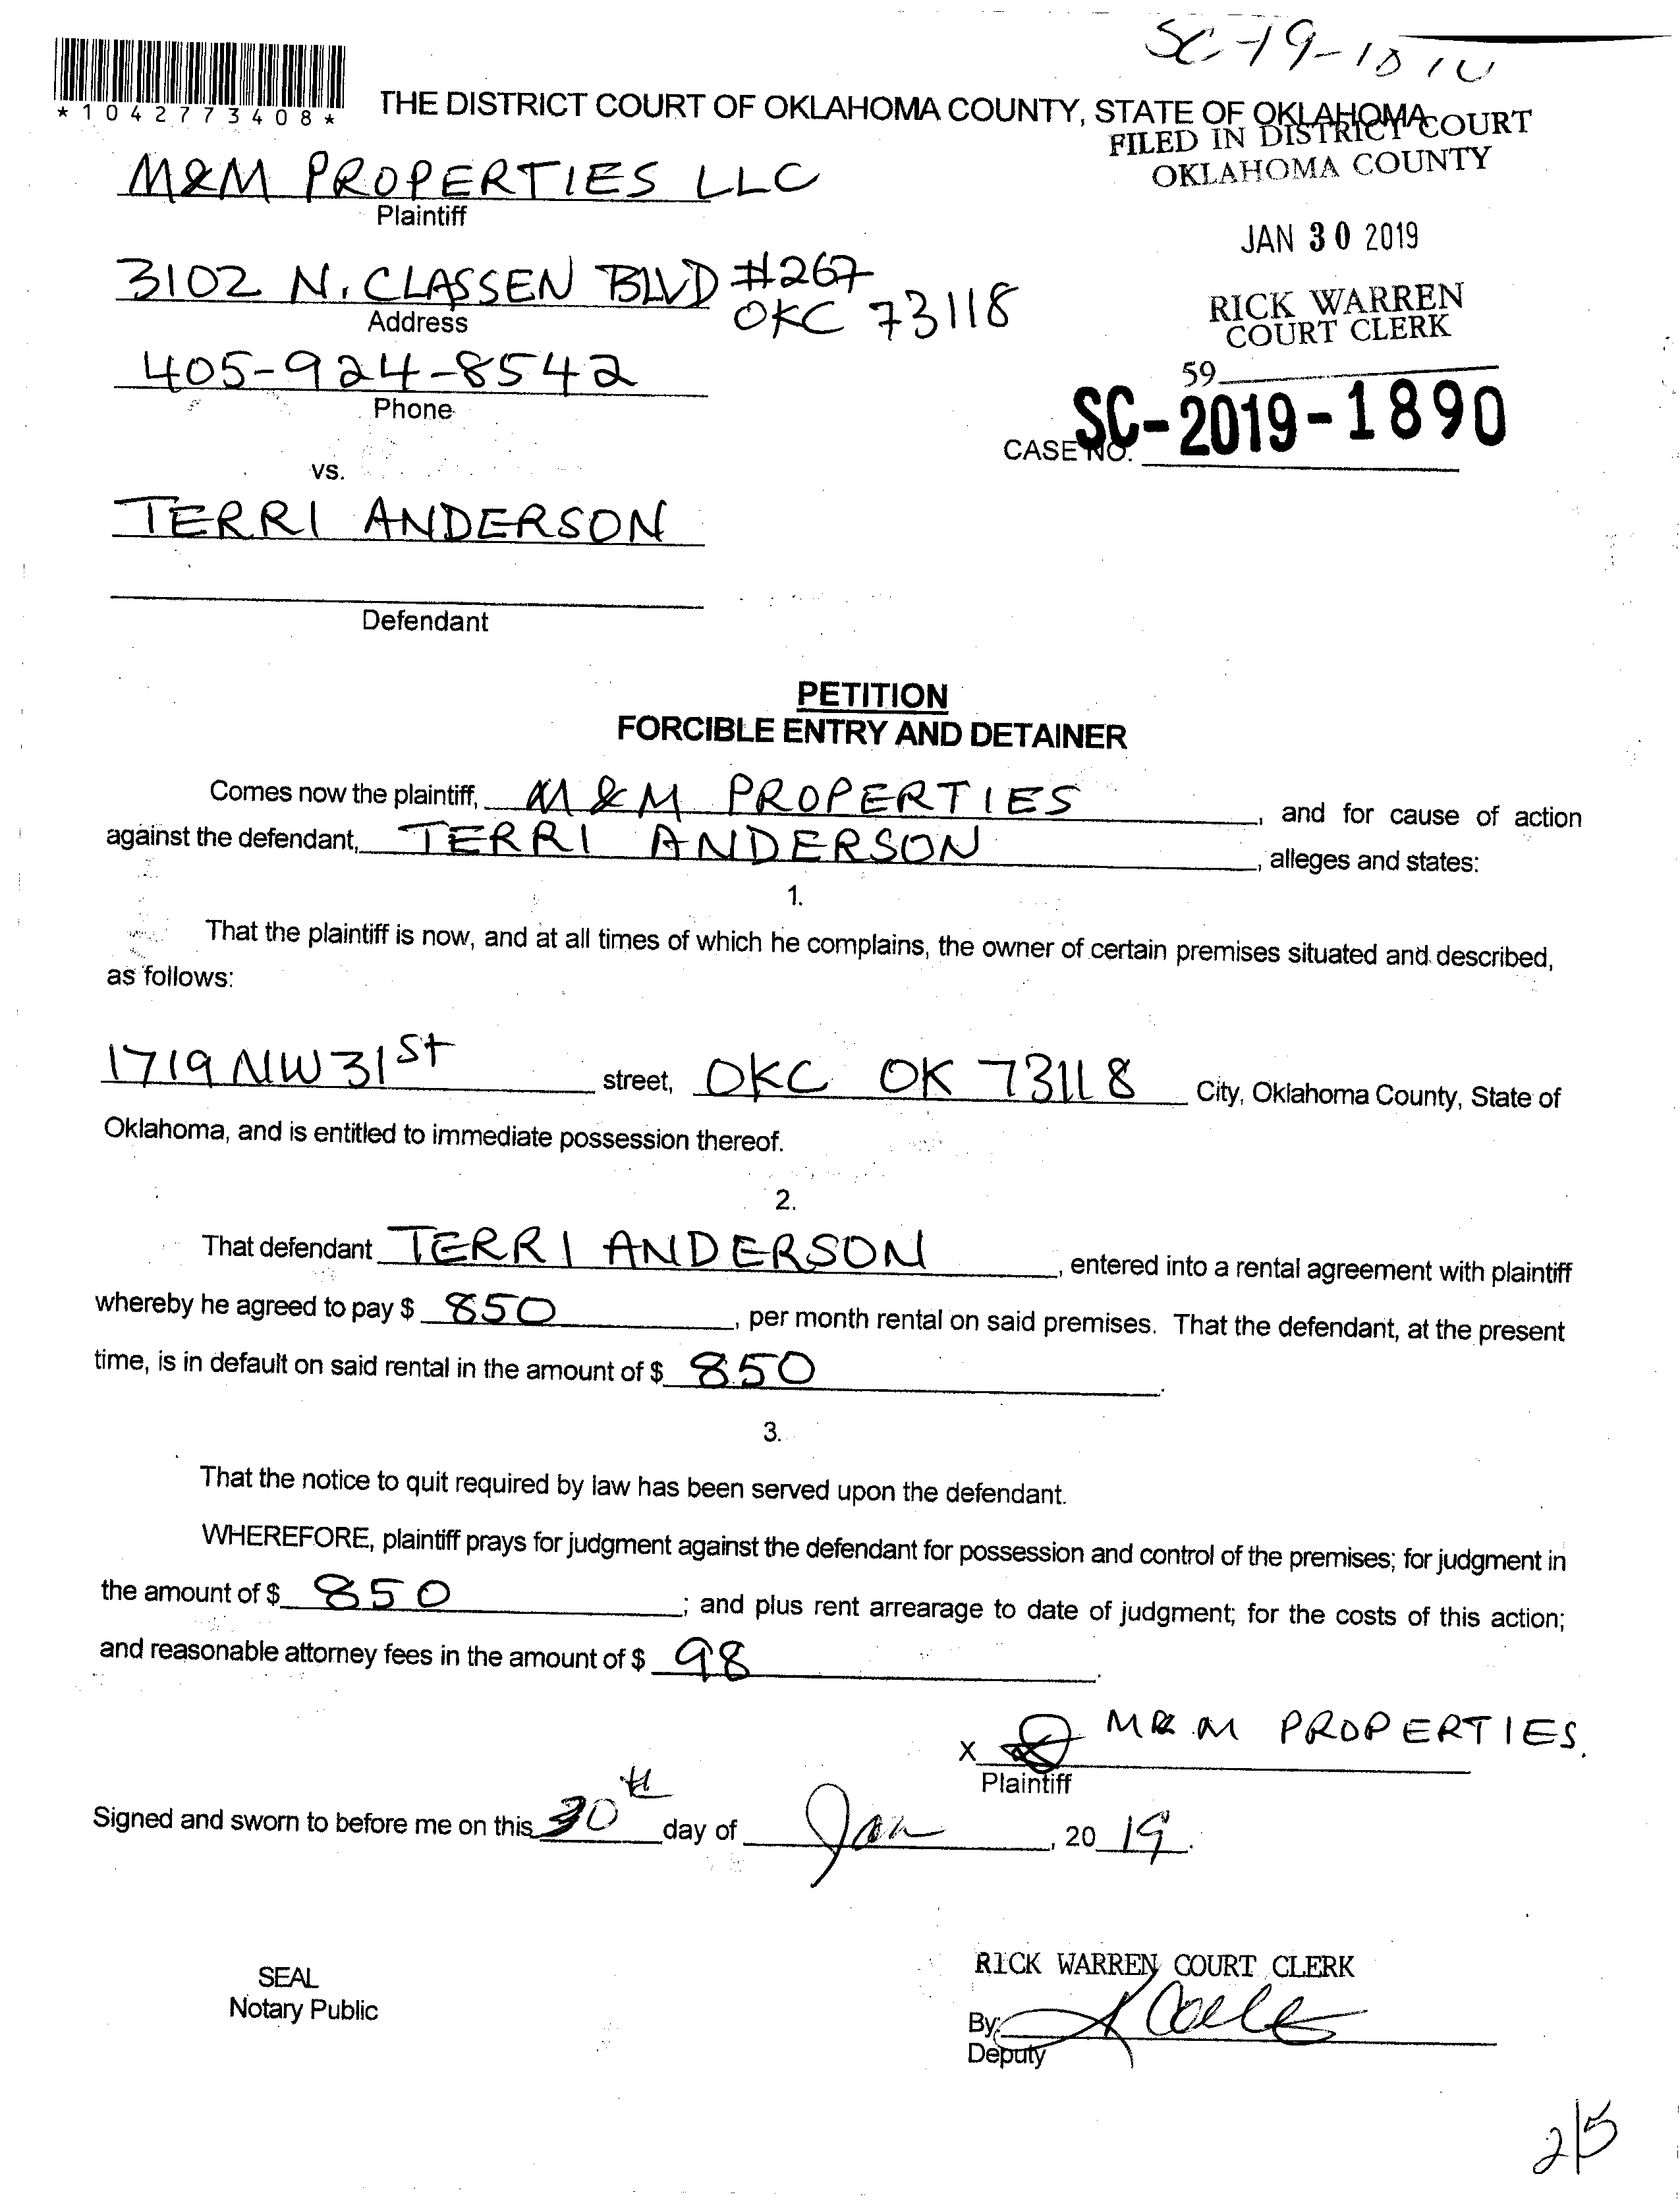 SC-19-1010
*1042773408*
THE DISTRICT COURT OF OKLAHOMA COUNTY, STATE OF OKLAHOMA
FILED IN DISTRICT COURT
OKLAHOMA COUNTY
M&M PROPERTIES LLC
Plaintiff
JAN 30 2019
3102 N. CLASSEN BLVD #267
OKC 73118
Address
RICK WARREN
COURT CLERK
405-924-8542
Phone
59
CASE NO. SC-2019-1890
vs.
TERRI ANDERSON
Defendant
PETITION
FORCIBLE ENTRY AND DETAINER
Comes now the plaintiff, M&M PROPERTIES, and for cause of action
against the defendant, TERRI ANDERSON, alleges and states:
1.
That the plaintiff is now, and at all times of which he complains, the owner of certain premises situated and described,
as follows:
1719 NW 31st street, OKC OK 73118 City, Oklahoma County, State of
Oklahoma, and is entitled to immediate possession thereof.
2.
That defendant TERRI ANDERSON, entered into a rental agreement with plaintiff
whereby he agreed to pay $ 850, per month rental on said premises. That the defendant, at the present
time, is in default on said rental in the amount of $ 850.
3.
That the notice to quit required by law has been served upon the defendant.
WHEREFORE, plaintiff prays for judgment against the defendant for possession and control of the premises; for judgment in
the amount of $ 850; and plus rent arrearage to date of judgment; for the costs of this action;
and reasonable attorney fees in the amount of $ 98.
X M&M PROPERTIES.
Plaintiff
Signed and sworn to before me on this 30th day of Jan, 2019.
SEAL
Notary Public
RICK WARREN COURT CLERK
By:
Deputy
2/5